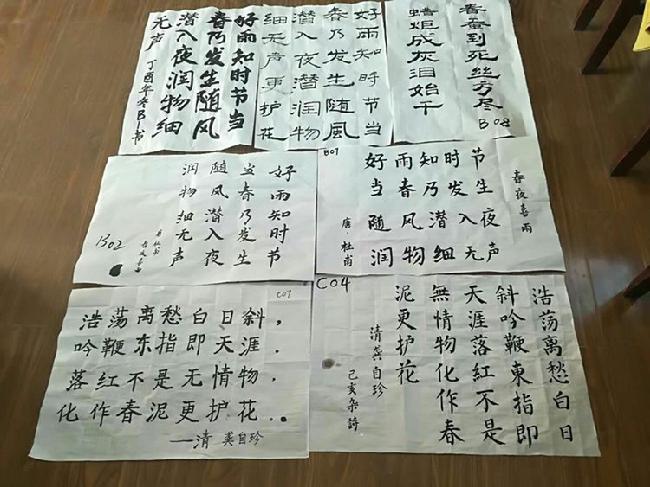 好雨知时节当
春乃发生随风
潜入夜润物细
无声 丁酉年冬日书
好雨知时节当
春乃发生随風
潜入夜潜润物
细无声更护花
春蚕到死丝方尽
B08
蜡炬成灰泪始干
好雨知时节
当春乃发生
随风潜入夜
润物细无声
B02
B01
春夜喜雨
好雨知时节
当春乃发生
随风潜入夜
润物细无声
唐·杜甫
C07
浩荡离愁白日斜,
吟鞭东指即天涯.
落红不是无情物,
化作春泥更护花.
—清 龚自珍
C04
浩荡离愁白日
斜吟鞭東指即
天涯落紅不是
無情物化作春
泥更护花
清龚自珍
己亥杂詩